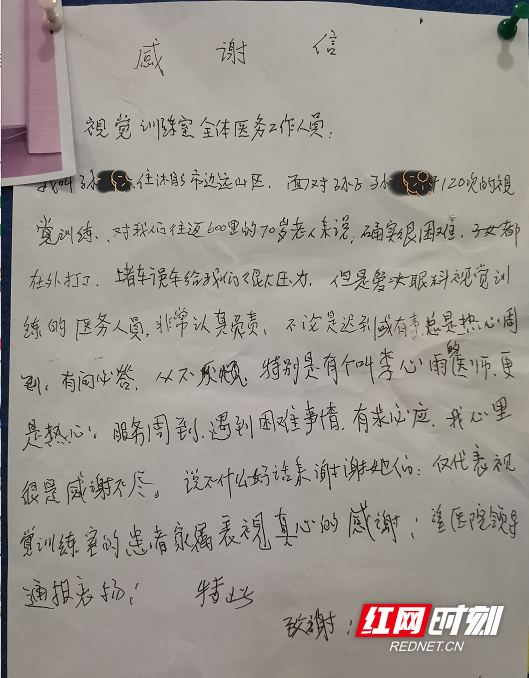 感 谢 信
视觉训练室全体医务工作人员:
我叫孙 住沐 市边远山区. 面对孙子孙 120次的视
觉训练、对我们往返600里的70岁老人来说,确实很困难.子女都
在外打工.堵车误车给我们很大压力.但是爱尔眼科视觉训
练的医务人员,非常认真负责.不论是迟到或有事总是热心周
到.有问必答.从不厌烦.特别是有个叫李心雨的医师.更
是热心.服务周到.遇到困难事情.有求必应.我心里
很是感谢不尽。说不什么好话来谢谢她们.仅代表视
觉训练室的患者家属表视真心的感谢!望医院领导
通报表扬! 特此
致谢!
红网时刻
REDNET.CN